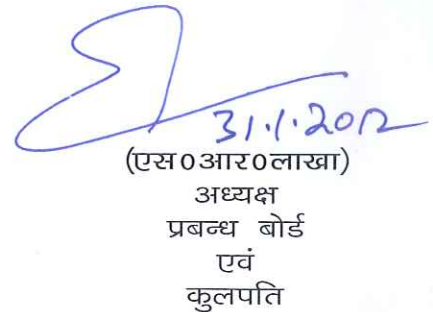 31.1.2012
(एस०आर०लाखा)
अध्यक्ष
प्रबन्ध बोर्ड
एवं
कुलपति